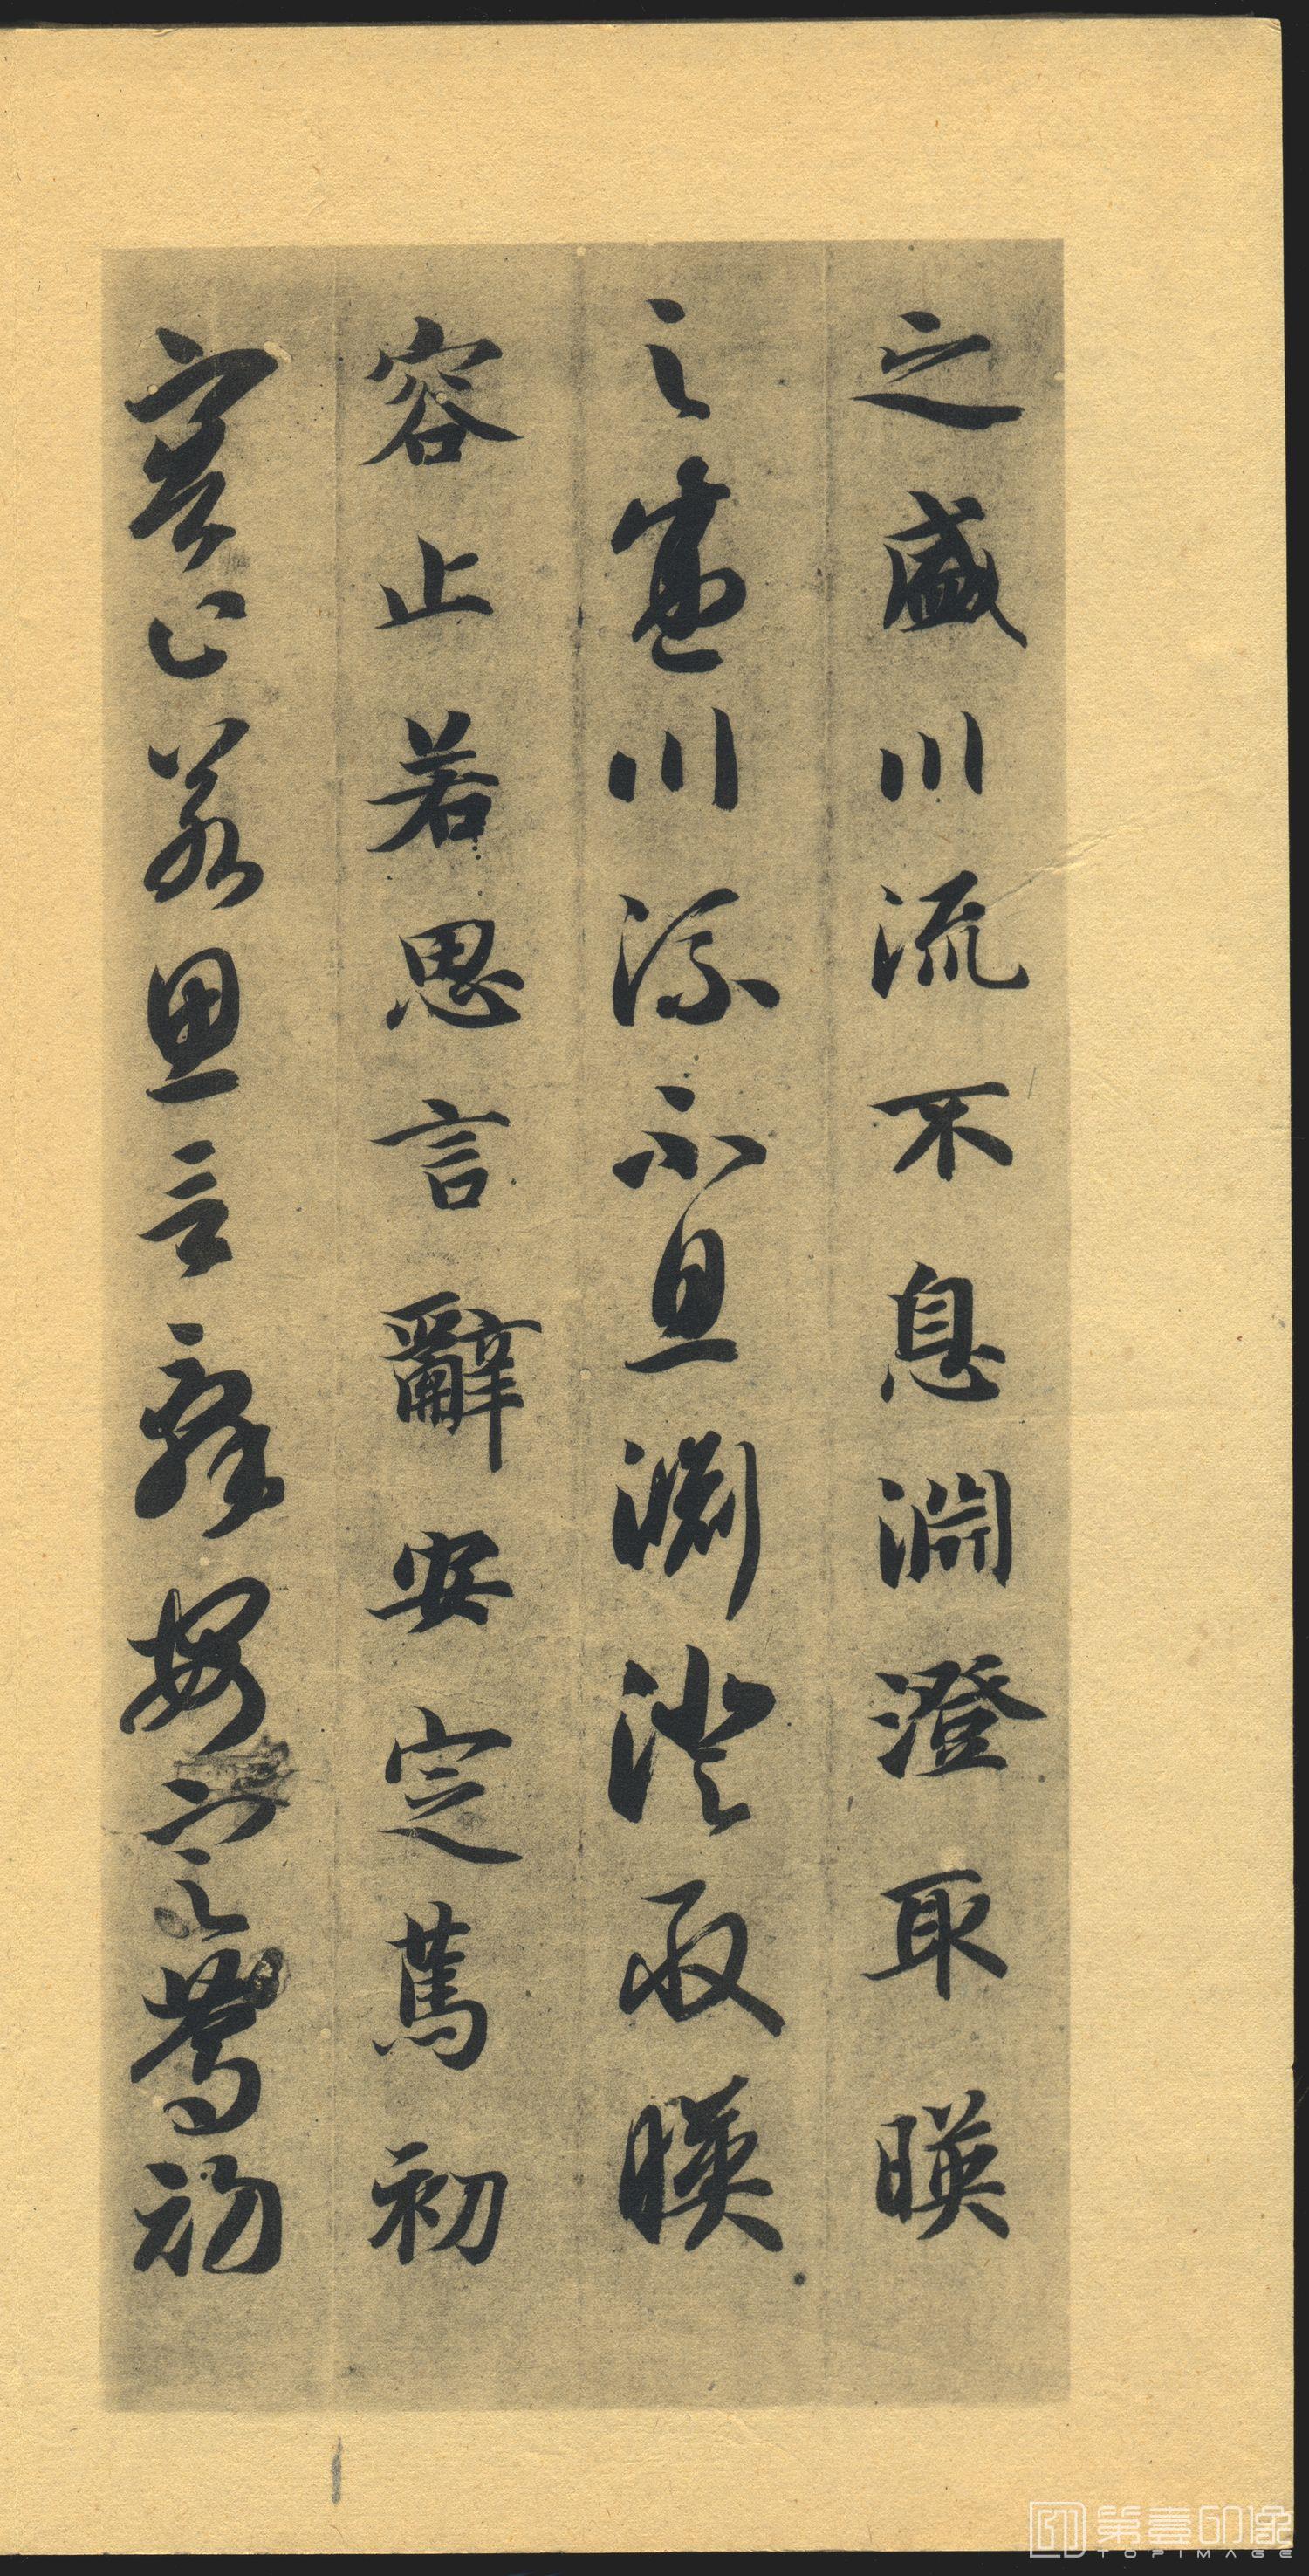 之盛川流不息淵澄取暎
之盛川流不息淵澄取暎
容止若思言辭安定篤初
容止若思言辭安定篤初
第壹印像
TOPIMAGE